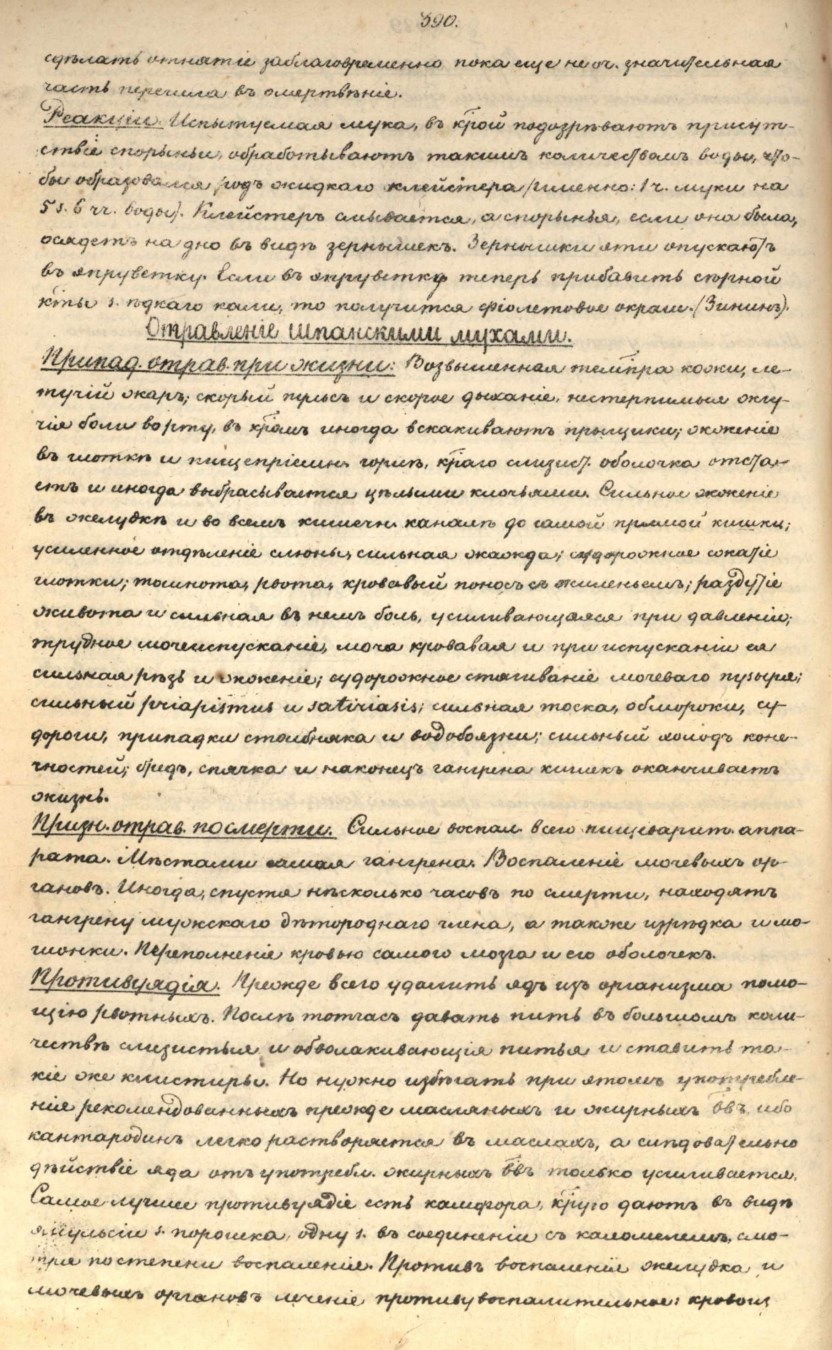 390.
сдѣлать отнятіе заблаговременно пока еще не оч. значительная
часть перешла въ омертвѣніе.
Реакціи. Испытуемая мука, въ крой подозрѣваютъ присут-
ствіе спорыньи, обработываютъ такимъ количествомъ воды, что-
бы образовался родъ жидкаго клейстера (именно: 1 ч. муки на
5 s. 6 чч. воды). Клейстеръ смывается, а спорынья, если она была,
осядетъ на дно въ видѣ зернышекъ. Зернышки эти опускаютъ
въ эпруветку. Если въ эпруветку теперь прибавить сѣрной
кты s. ѣдкаго кали, то получится фіолетовое окраш. (Зининъ).
Отравленіе шпанскими мухами.
Припад. отрав. при жизни: Возвышенная темпра кожи, ле-
тучій жаръ; скорый пульсъ и скорое дыханіе, нестерпимыя жгу-
чія боли во рту, въ кромъ иногда вскакиваютъ прыщики; жженіе
въ глоткѣ и пищепріемн. горлѣ, краго слизист. оболочка отста-
етъ и иногда выбрасывается цѣлыми клочьями. Сильное жженіе
въ желудкѣ и во всемъ кишечн. каналѣ до самой прямой кишки;
усиленное отдѣленіе слюны, сильная жажда; судорожное сжатіе
глотки; тошнота, рвота, кровавый поносъ съ жиленьемъ; раздутіе
живота и сильная въ немъ боль, усиливающаяся при давленіи;
трудное мочеиспусканіе, моча кровавая и при испусканіи ея
сильная рѣзь и жженіе; судорожное стягиваніе мочеваго пузыря;
сильный priapismus и satiriasis; сильная тоска, обмороки, су-
дороги, припадки столбняка и водобоязни; сильный холодъ коне-
чностей; бредъ, спячка и наконецъ гангрена кишекъ оканчиваетъ
жизнь.
Призн. отрав. по смерти. Сильное воспал. всего пищеварит. аппа-
рата. Мѣстами самая гангрена. Воспаленіе мочевыхъ ор-
гановъ. Иногда, спустя нѣсколько часовъ по смерти, находятъ
гангрену мужскаго дѣтороднаго члена, а также изрѣдка и мо-
шонки. Переполненіе кровью самого мозга и его оболочекъ.
Противуядія. Прежде всего удалить ядъ изъ организма помо-
щію рвотныхъ. Послѣ тотчасъ давать пить въ большомъ коли-
чествѣ слизистыя и обволакивающія питья и ставить та-
кіе же клистиры. Но нужно избѣгать при этомъ употребле-
нія рекомендованныхъ прежде масляныхъ и жирныхъ ввъ ибо
кантародинъ легко растворяется въ маслахъ, а слѣдовательно
дѣйствіе яда отъ употребл. жирныхъ ввъ только усиливается.
Самое лучшее противуядіе есть камфора, круго даютъ въ видѣ
эмульсіи s. порошка, одну s. въ соединеніи съ каломелемъ, смо-
тря по степени воспаленія. Противъ воспаленія желудка и
мочевыхъ органовъ леченіе противувоспалительное: кровоиз